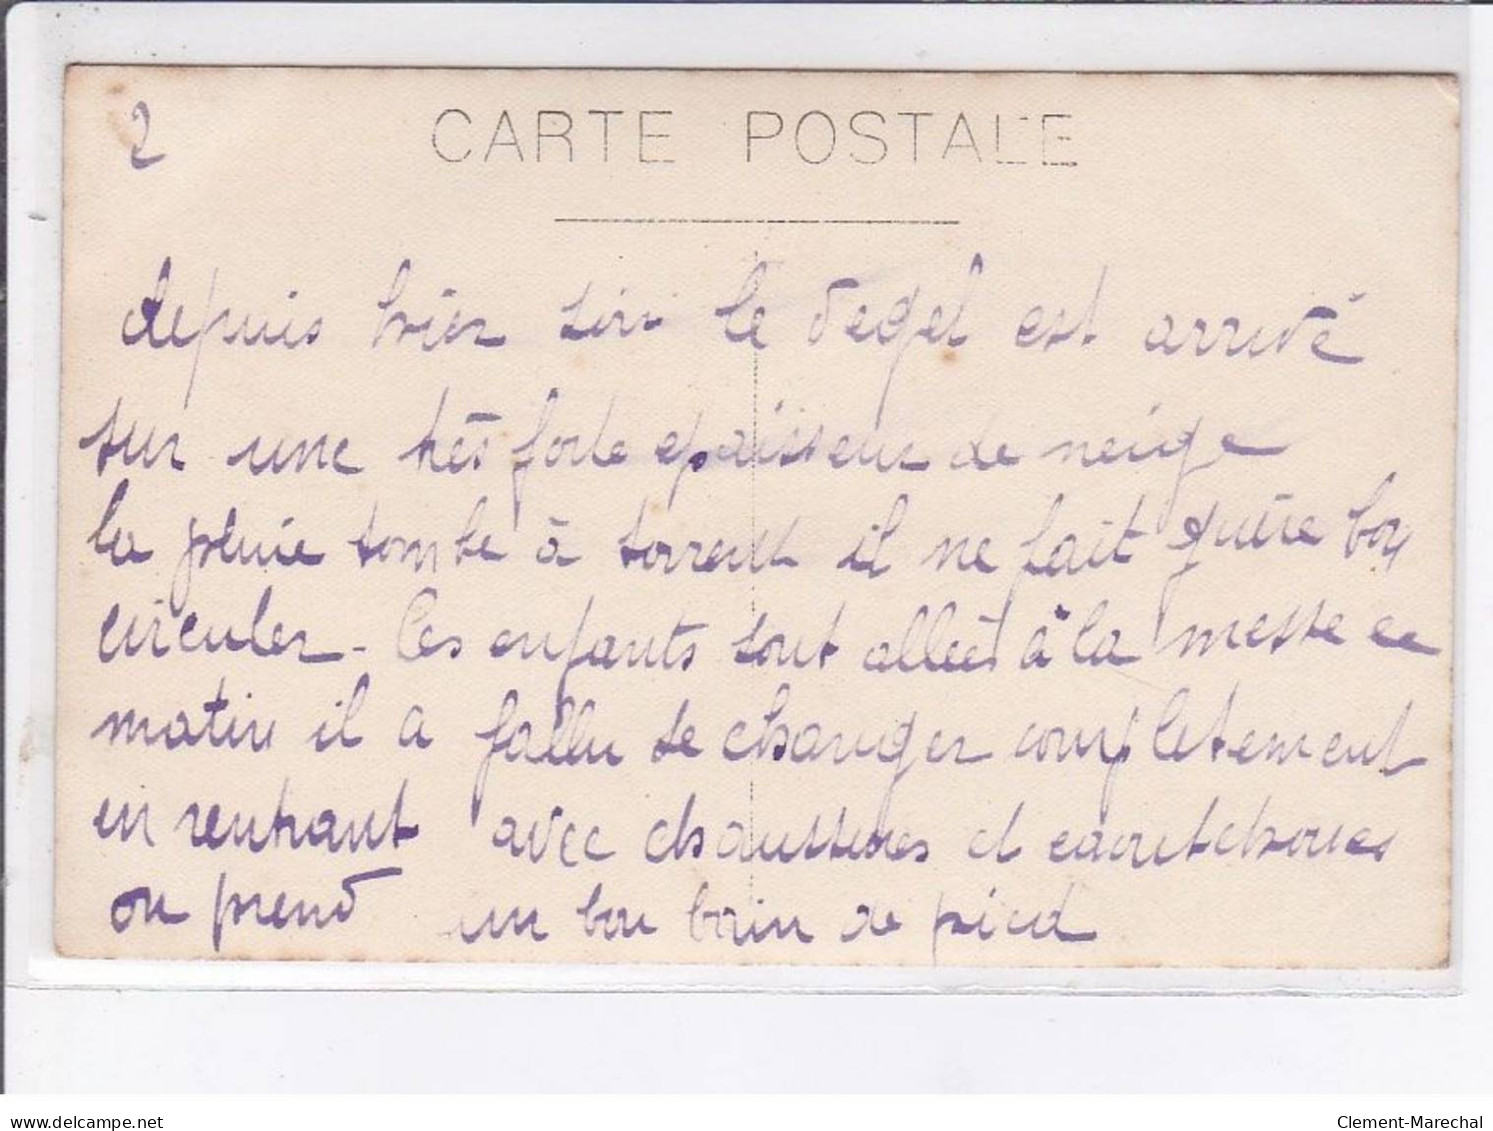 2
CARTE POSTALE
depuis hier soir le degel est arrivé
sur une très forte epaisseur de neige
la pluie tombe à torrent il ne fait guère bon
circuler - les enfants sont allées à la messe ce
matin il a fallu se changer completement
en rentrant avec chaussures et caoutchoucs
on prend un bon bain de pied
www.delcampe.net
Clement-Marechal